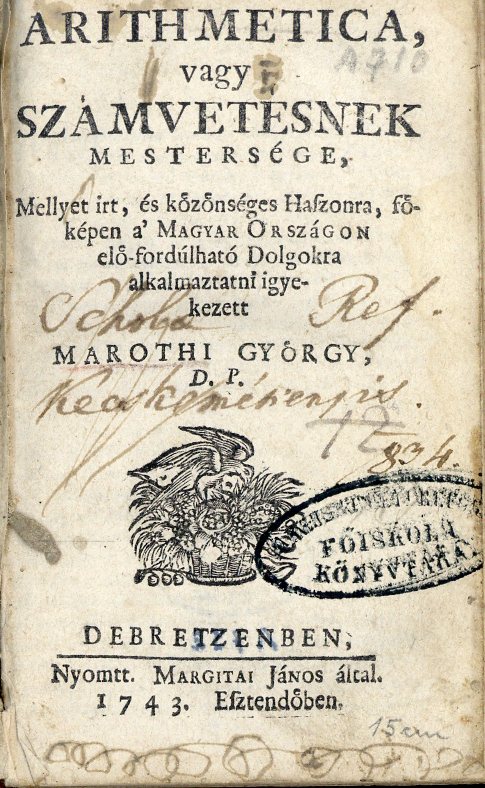 ARITHMETICA,
A710
vagy
SZÁMVETÉSNEK
MESTERSÉGE,
Mellyet írt, és kȍzȍnséges Haſzonra, fȍ-
képen a' MAGYAR ORSZÁGON
elȍ-fordúlható Dolgokra
alkalmaztatni igye-
kezett
Schola Ref.
MAROTHI GYÖRGY,
D. P.
Kecskemétiensis.
12
834.
FŐISKOLA
KÖNYVTÁRA
DEBRETZENBEN,
Nyomtt. MARGITAI János által.
1743. Eſztendȍben.
15 cm